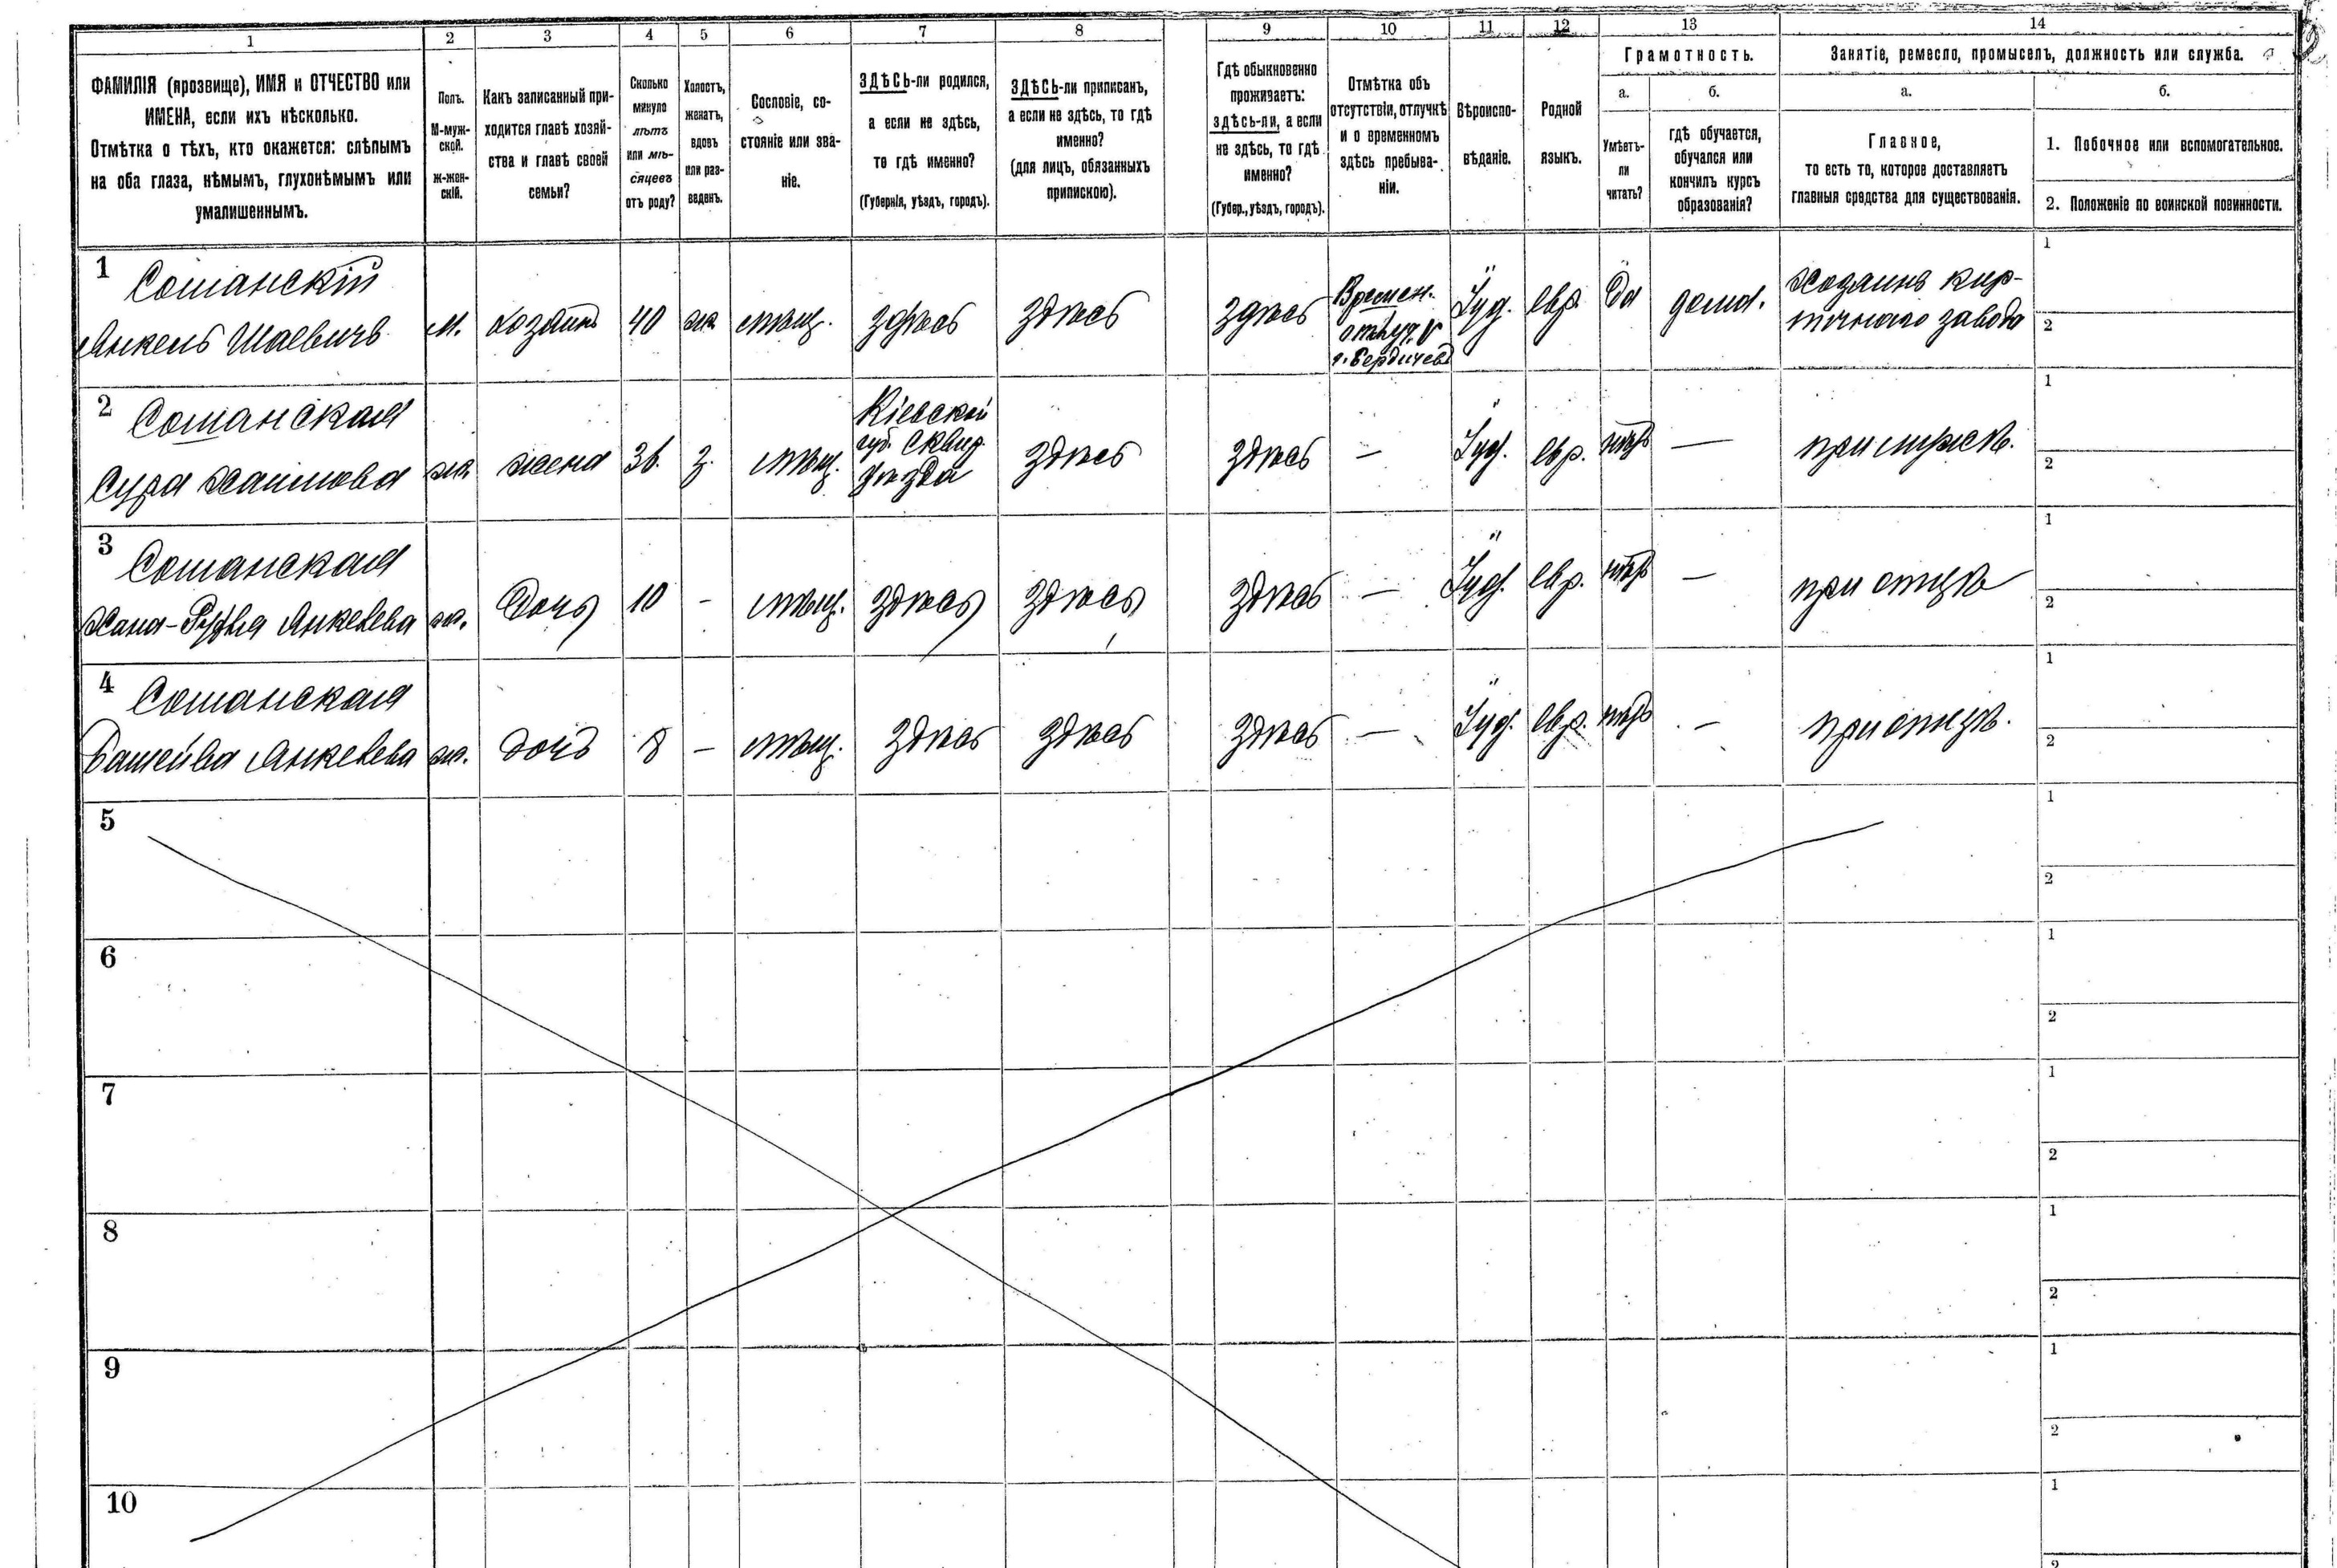 1 2 3 4 5 6 7 8 9 10 11 12 13 14
ФАМИЛІЯ (прозвище), ИМЯ и ОТЧЕСТВО или
ИМЕНА, если ихъ нѣсколько.
Отмѣтка о тѣхъ, кто окажется: слѣпымъ
на оба глаза, нѣмымъ, глухонѣмымъ или
умалишеннымъ.
Полъ.
М-муж-
ской.
ж-жен-
скій.
Какъ записанный при-
ходится главѣ хозяй-
ства и главѣ своей
семьи?
Сколько
минуло
лѣтъ
или мѣ-
сяцевъ
отъ роду?
Холостъ,
женатъ,
вдовъ
или раз-
веденъ.
Сословіе, со-
стояніе или зва-
ніе.
ЗДѢСЬ-ли родился,
а если не здѣсь,
то гдѣ именно?
(Губернія, уѣздъ, городъ).
ЗДѢСЬ-ли приписан,
а если не здѣсь, то гдѣ
именно?
(для лицъ, обязанныхъ
припискою).
Гдѣ обыкновенно
проживаетъ:
здѣсь-ли, а если
не здѣсь, то гдѣ
именно?
(Губер., уѣздъ, городъ).
Отмѣтка объ
отсутствіи, отлучкѣ
и о временномъ
здѣсь пребыва-
ніи.
Вѣроиспо-
вѣданіе.
Родной
языкъ.
Грамотность.
а.
Умѣетъ-
ли
читать?
б.
гдѣ обучается,
обучался или
кончилъ курсъ
образованія?
Занятіе, ремесло, промыселъ, должность или служба.
а.
Главное,
то есть то, которое доставляетъ
главныя средства для существованія.
б.
1. Побочное или вспомогательное.
2. Положеніе по воинской повинности.
1
Сошанскій
Анкель Шаевичъ
м.
хозяинъ
40
ж
мѣщ.
здѣсь
здѣсь
здѣсь
Времен.
г. Бердичевъ
Іуд.
евр.
да
дома.
Хозяинъ кир-
пичнаго завода
1
2
2
Сошанская
Сура Хаимова
ж.
жена
36.
з.
мѣщ.
Кіевской
губ. Сквир.
уѣзда
здѣсь
здѣсь
—
Іуд.
евр.
нѣтъ
—
при мужѣ.
1
2
3
Сошанская
Хана-Рухля Анкелева
ж.
Дочь
10
-
мѣщ.
здѣсь
здѣсь
здѣсь
—
Іуд.
евр.
нѣтъ
—
при отцѣ
1
2
4
Сошанская
Башейва Анкелева
ж.
дочь
8
-
мѣщ.
здѣсь
здѣсь
здѣсь
—
Іуд.
евр.
нѣтъ
—
при отцѣ.
1
2
5
1
2
6
1
2
7
1
2
8
1
2
9
1
2
10
1
2